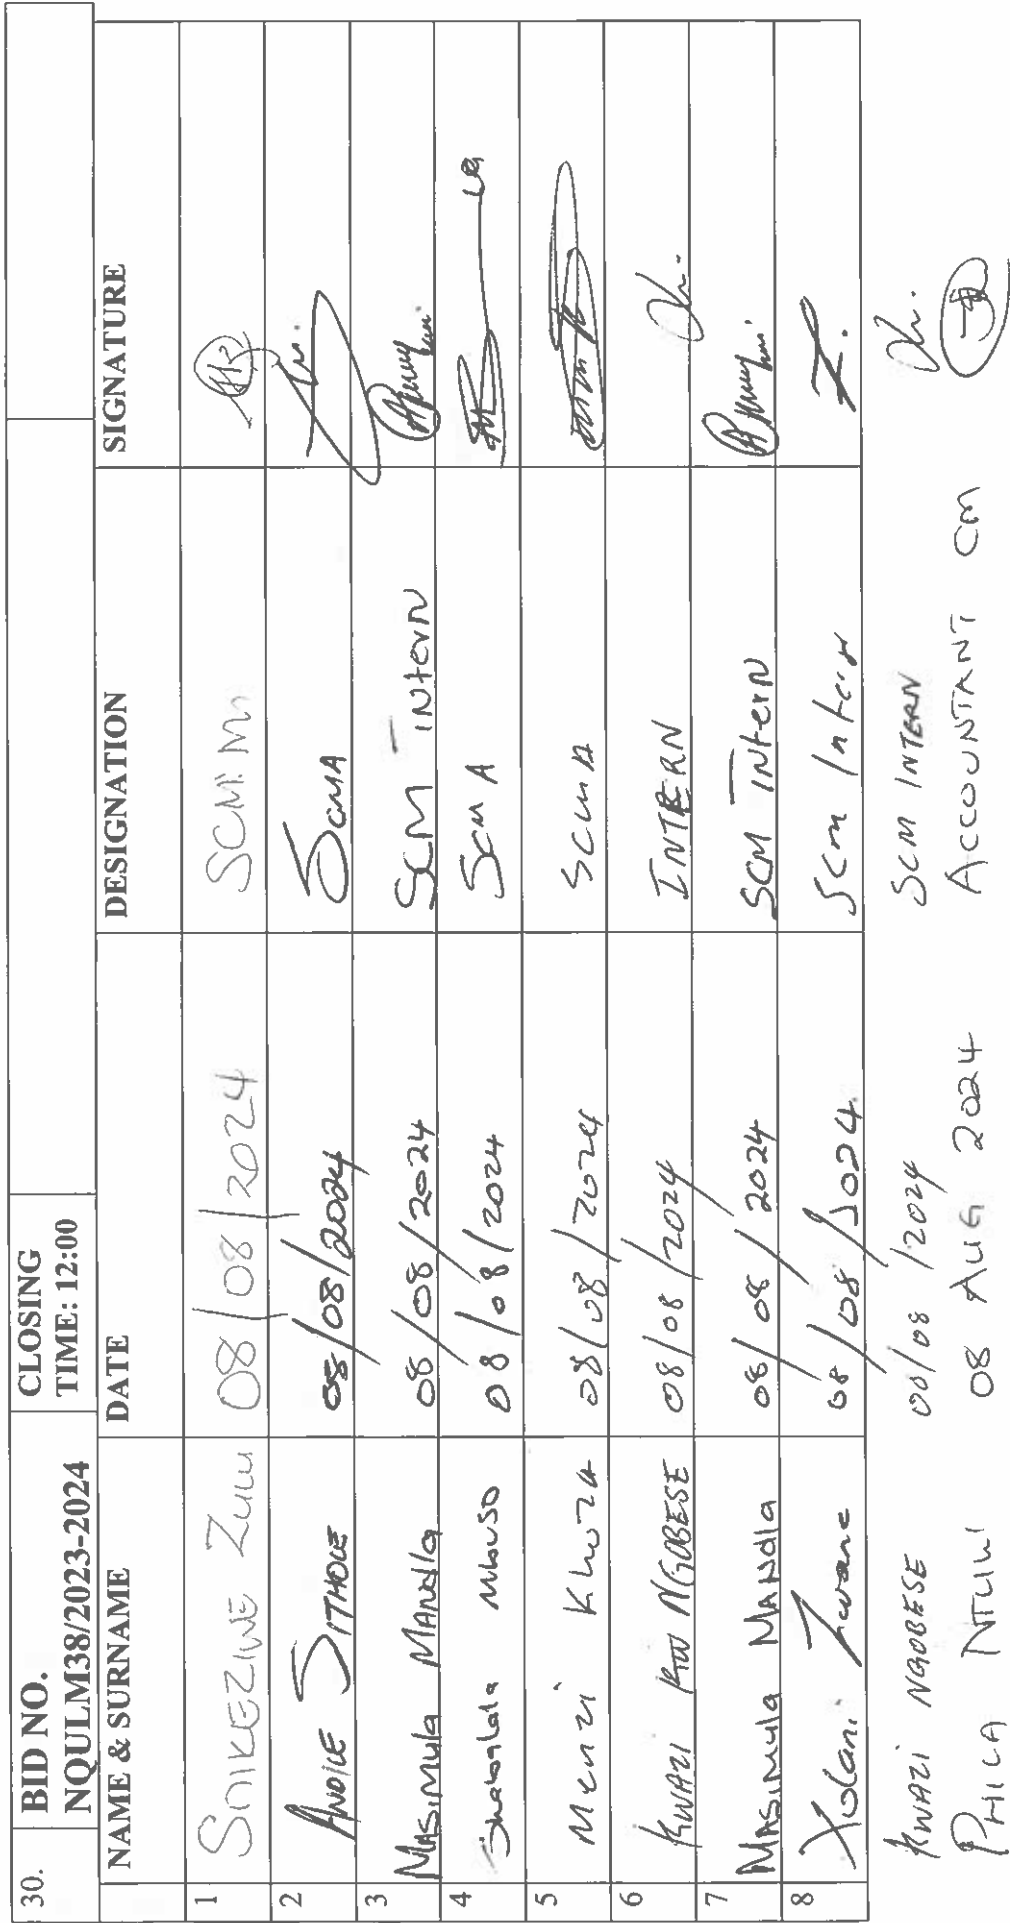 30. BID NO. NQULM38/2023-2024 CLOSING TIME: 12:00
NAME & SURNAME DATE DESIGNATION SIGNATURE
1 SNIKEZIWE Zulu 08/08/2024 SCM M
2 ANDILE SITHOLE 08/08/2024 SCMA
3 MASIMULA MANDla 08/08/2024 SCM INtern
4 Shabalala Mbuso 08/08/2024 SCM A
5 Menzi Khoza 08/08/2024 SCMA
6 KWAZI NGOBESE 08/08/2024 INTERN
7 MASIMUla MANdla 08/08/2024 SCM INterN
8 Xolani Zwane 08/08/2024 SCM Intern
KWAZI NGOBESE 08/08/2024 SCM INTERN
PHILA NTULI 08 AUG 2024 ACCOUNTANT CM